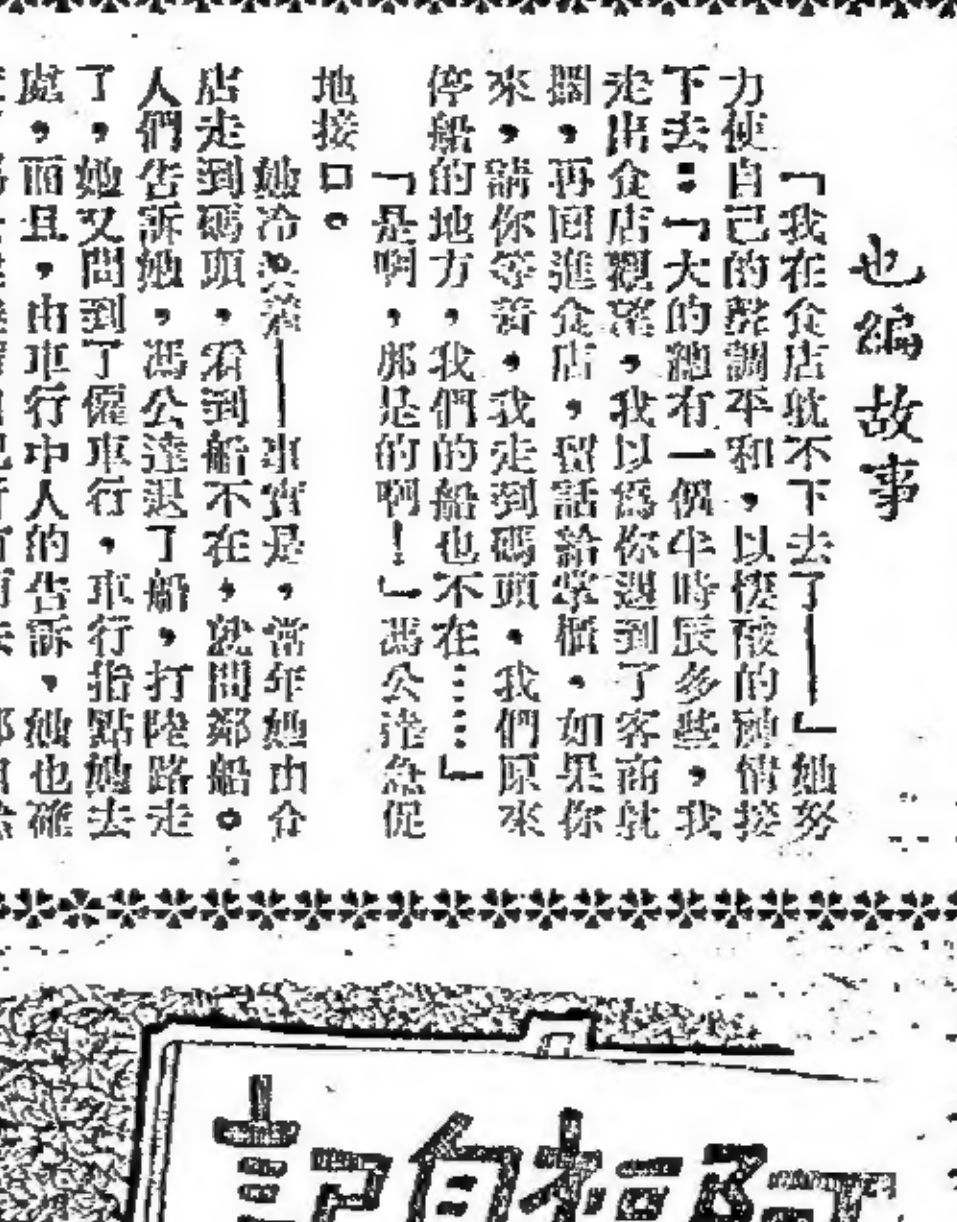 也編故事
「我在食店躭不下去了——」她努
力使自己的聲調平和,以悽酸的神情接
下去:「大約總有一個半時辰多些,我
走出食店觀望,我以爲你遇到了客商躭
擱,再回進食店,留話給掌櫃,如果你
來,請你等着,我走到碼頭,我們原來
停船的地方,我們的船也不在……」
「是啊,那是的啊!」馮公達急促
地接口。
她冷笑着——事實是,當年她由食
店走到碼頭,看到船不在,就問鄰船。
人們告訴她,馮公達退了船,打陸路走
了,她又問到了僱車行,車行指點她去
處,而且,由車行中人的告訴,她也確